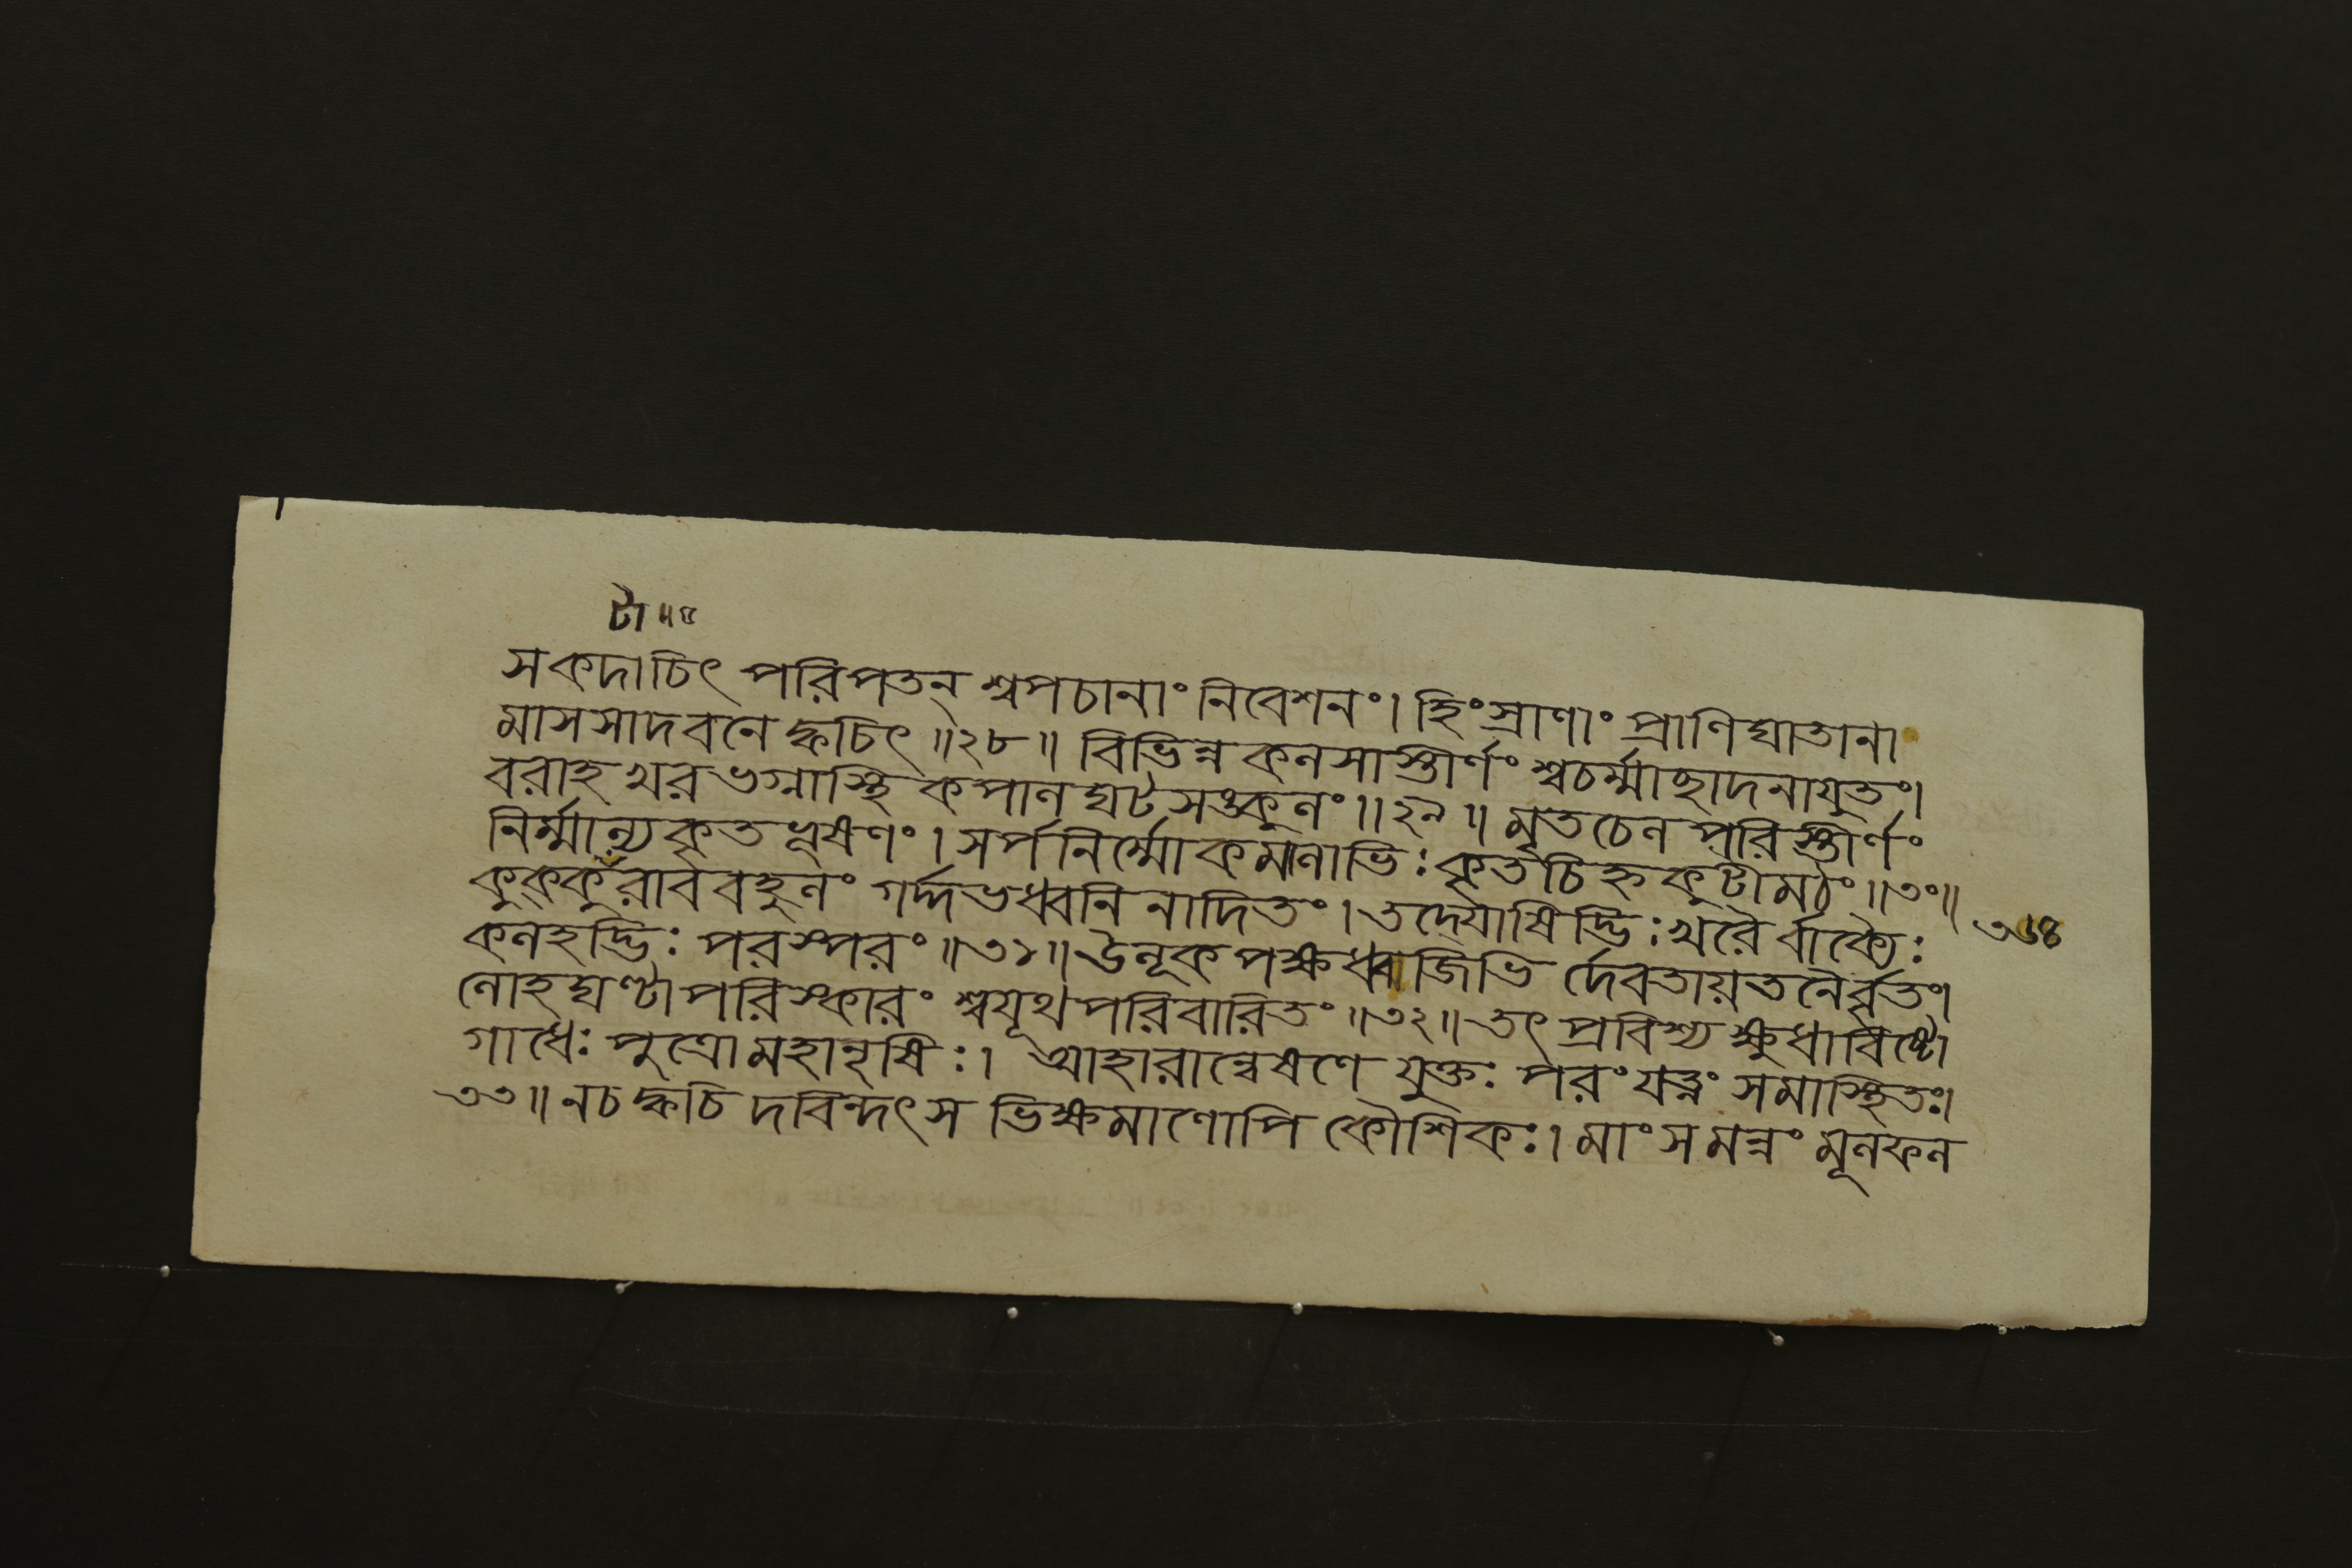 টী ॥৫
সকদাচিৎ পরিপতন্ শ্বপচানাং নিবেশনং। হিংস্রাণাং প্রাণিঘাতানা
মাসসাদবনে ক্বচিৎ ॥২৮॥ বিভিন্নকলসাস্তীর্ণং শ্বচর্ম্মাছাদনাযুতং।
বরাহখরভগ্নাস্থিকপালঘটসঙ্কুলং॥২৯॥ মৃতচেল পরিস্তীর্ণং
নির্ম্মাল্যকৃতভূষণং। সর্পনির্ম্মোকমালাভিঃ কৃতচিহ্নকুটীমঠং॥৩০॥
কুক্কুরারববহুলং গর্দ্দভধ্বনিনাদিতং। তদ্যোষিদ্ভিঃ খরৈর্বাক্যৈঃ
কলহদ্ভিঃ পরস্পরং॥৩১॥ উলূকপক্ষধ্বজিভি র্দেবতায়তনৈর্বৃতং।
লোহঘণ্টাপরিস্কারং শ্বযূথপরিবারিতং॥৩২॥ তৎ প্রবিশ্য ক্ষুধাবিষ্টো
গাধেঃ পুত্রোমহানৃষিঃ। আহারান্বেষণে যুক্তঃ পরং যত্নং সমাস্থিতঃ।
৩৩॥ নচ ক্বচি দবিন্দৎস ভিক্ষমাণোপি কৌশিকঃ। মাংসমন্নং মূলফল
৩৬৪